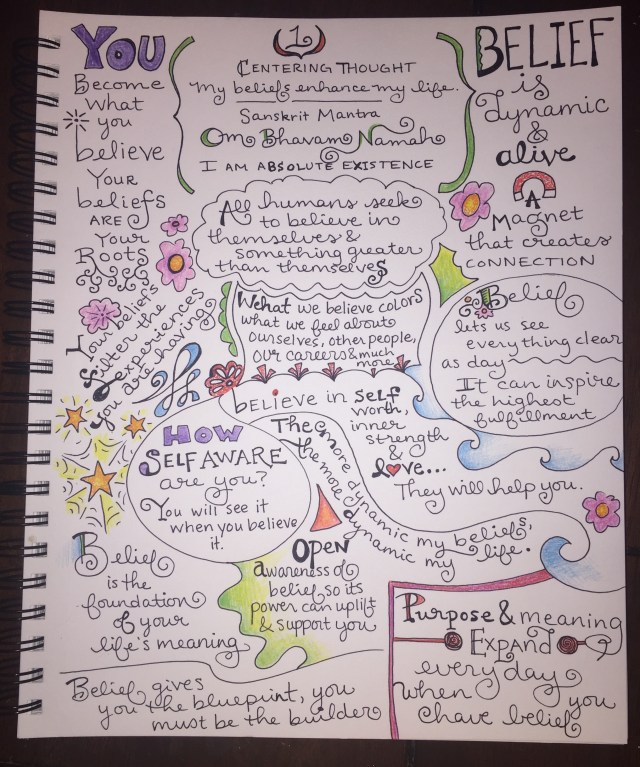 YOU
Become
what
you
believe
YOUR
beliefs
ARE
Your
Roots
Your beliefs
filter the
experiences
you are having
1
CENTERING THOUGHT
My beliefs enhance my life.
Sanskrit Mantra
Om Bhavam Namah
I AM ABSOLUTE EXISTENCE
BELIEF
is
dynamic
&
alive
A
Magnet
that creates
CONNECTION
All humans seek
to believe in
themselves &
something greater
than themselves
What we believe colors
what we feel about
ourselves, other people,
our careers & much
more
Belief
lets us see
everything clear
as day
It can inspire
the highest
fulfillment
believe in self
worth,
inner
strength
&
love...
They will help you.
HOW
SELF AWARE
are you?
You will see it
when you believe
it.
The more dynamic my beliefs,
the more dynamic my life.
Belief
is the
foundation
of your
life's meaning
OPEN
awareness of
belief so its
power can uplift
& support you
Purpose & meaning
EXPAND
everyday
when you
have belief
Belief gives
you the blueprint, you
must be the builder